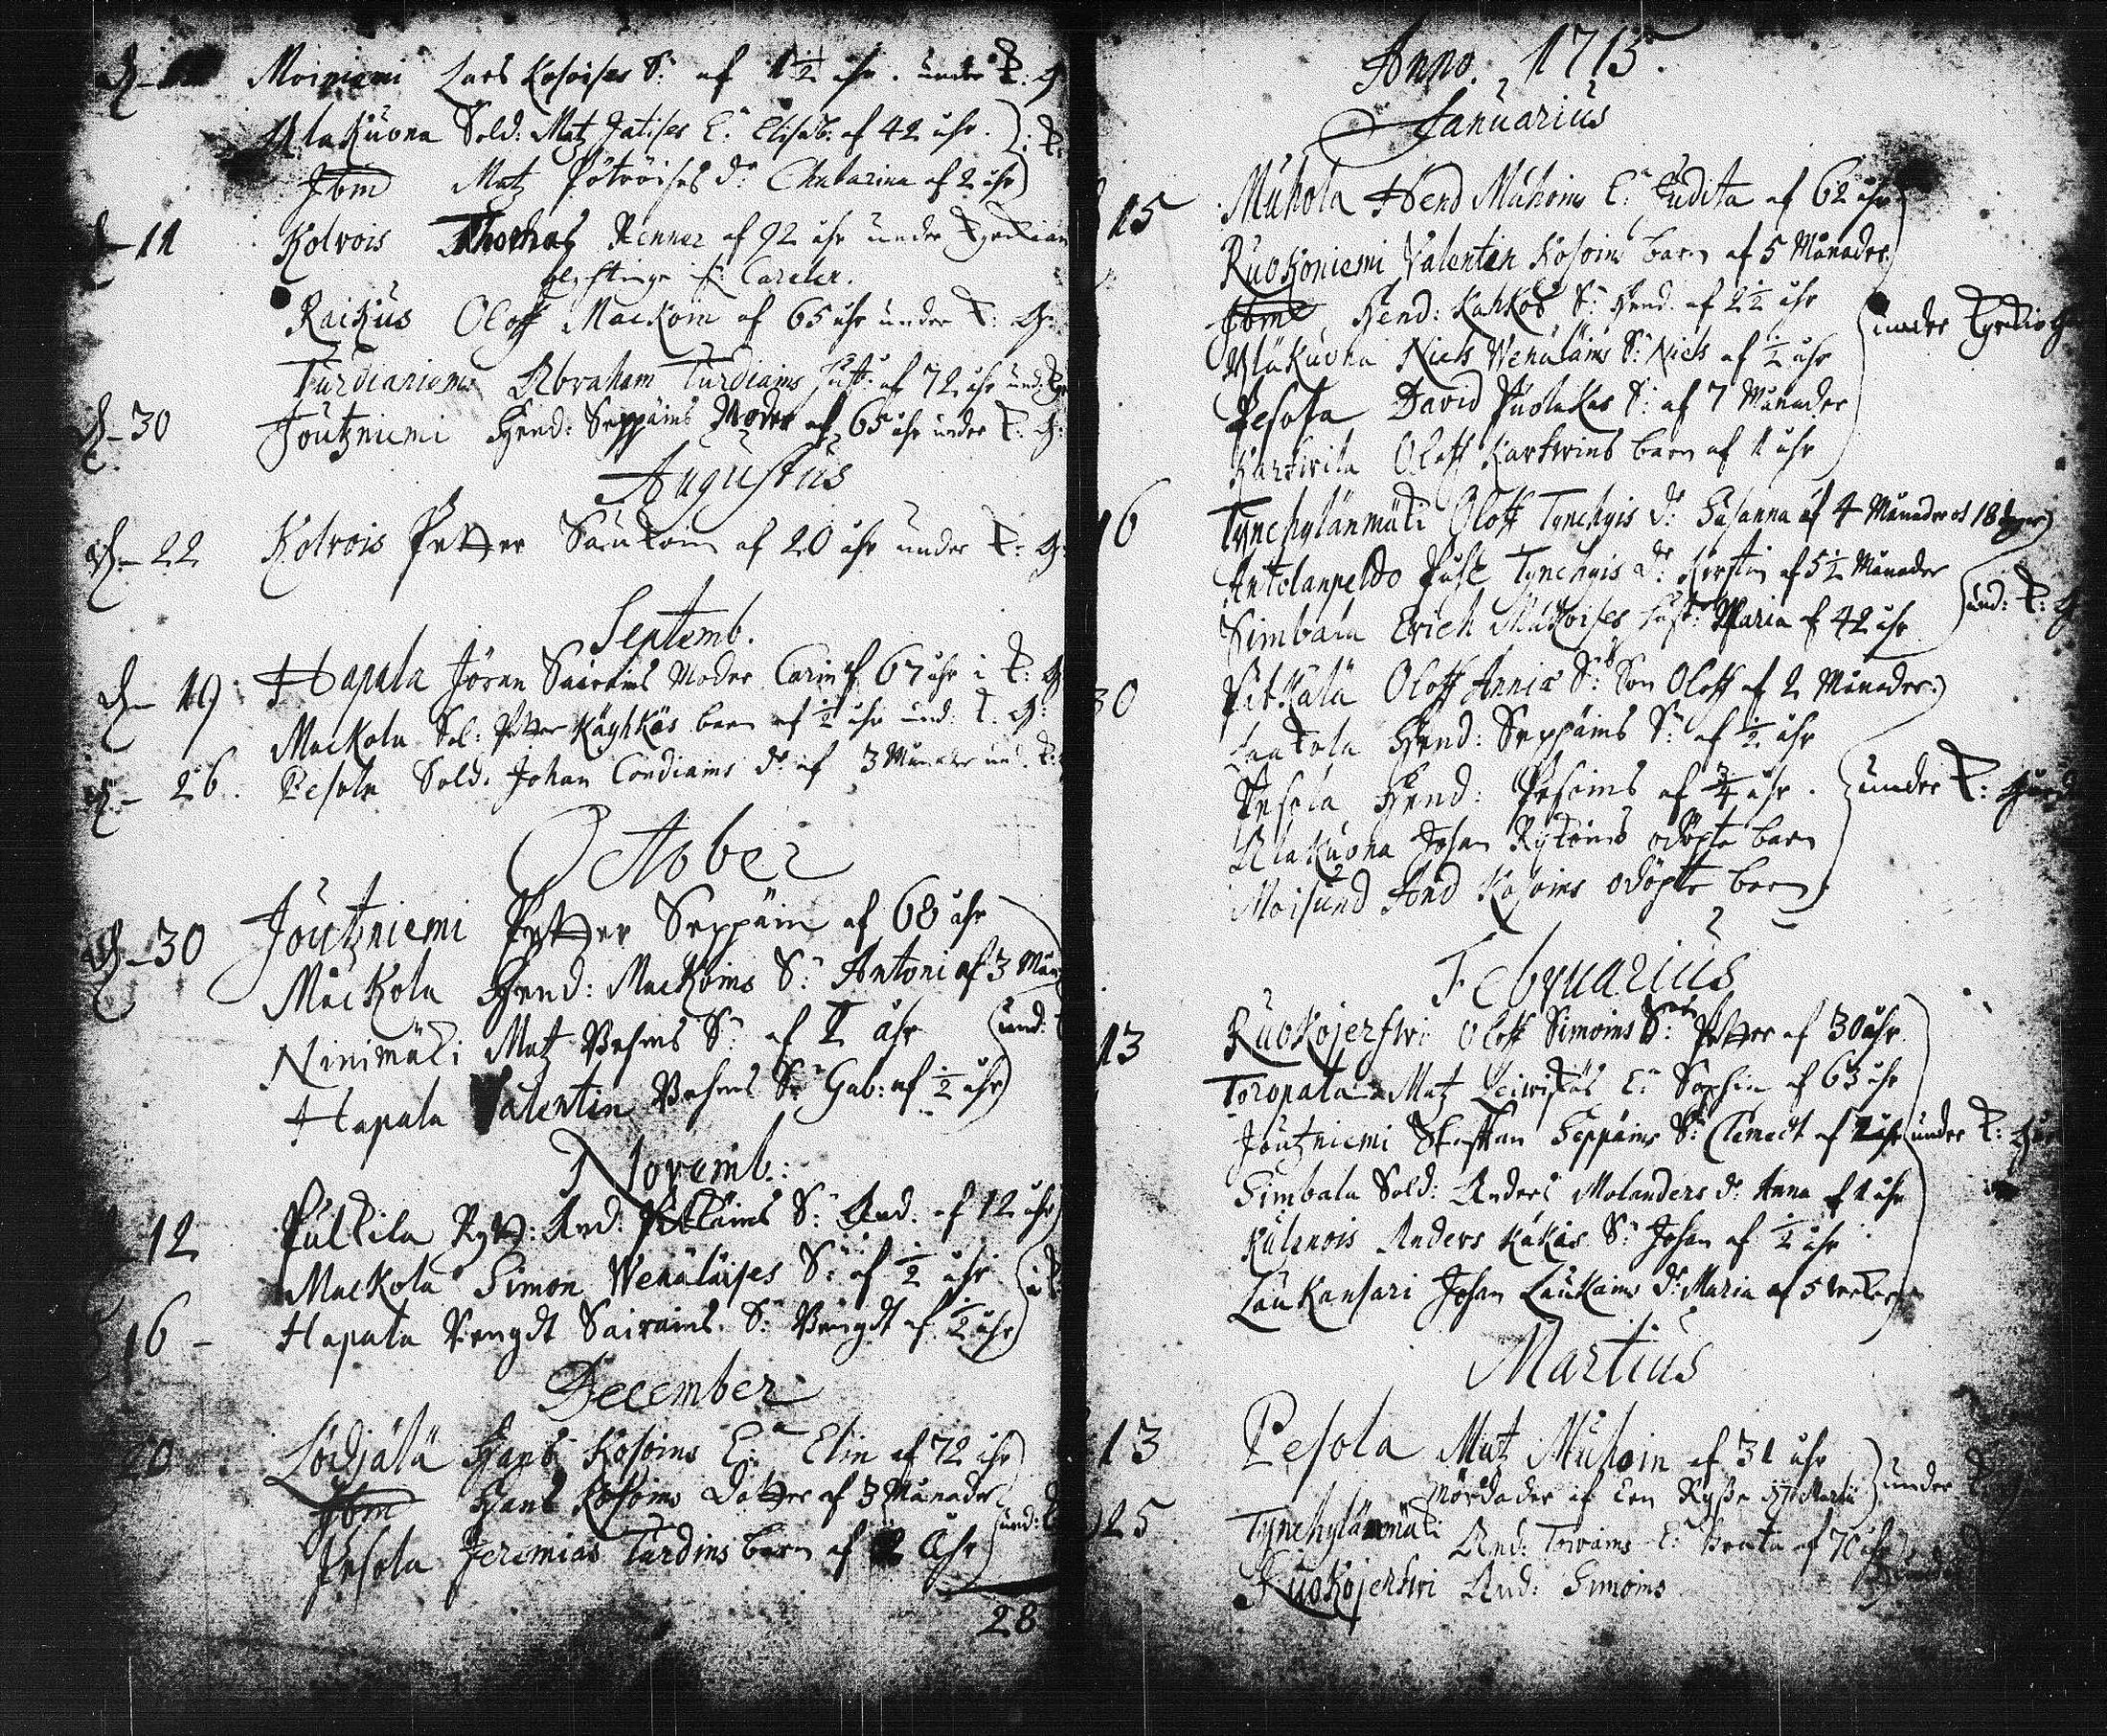 Moiniemi Lars Kosoises S: af 1½ åhr. under K: G
Ala Kuona Sold: Matz Jatises E: Elisab. af 42 åhr.
Ibm Matz Pötröises d: Chatarina af 2 åhr
11 Kolrois Thomas Renner af 92 åhr under
Careler.
Raikus Oloff Mackoin af 65 åhr under K: G:
Turdianiemi Abraham Turdiains hust: af 72 åhr und:
d. 30 Joutzniemi Hend: Seppäins Moder af 65 åhr under K: G:
Augustus
d. 22 Kolrois Petter Saukoin af 20 åhr under K: G:
Septemb.
d. 19 Hapala Jöran Sairains Moder Carin af 67 åhr i K: G
Mackola Sol: Petter Käyhkäs barn af ½ åhr und: K: G:
26. Pesola Sold. Johan Condiains d: af 3 Månader und. K:
October
d. 30 Joutzniemi Petter Seppäin af 68 åhr
Mackola Hend: Mackoins S: Antoni af 3 Mån
Ninimäki Matz S: af 1 åhr und:
Hapala Valentin S: Gab: af ½ åhr
Novemb:
12 Pulkila And: S: And. af 12 åhr
Mackola Simon Wenäläises S: af ½ åhr
16 Hapala Bengdt Sairains S: Bengdt af ½ åhr
December
20 Lödjälä Hans Kosoins E: Elin af 72 åhr
Ibm Hans Kosoins dotter af 3 Månader
Pesola Jeremias Turdins barn af 2 åhr und:
28
Anno 1715.
Januarius
15 Muhola Hend Muhoins E: Judita af 62 åhr
Ruokoniemi Valentin Kosoins barn af 5 Månader
Ibm Hend: Kahkos S: Hend. af 2½ åhr
Alakuona Niels Wenäläins S: Niels af ½ åhr under
Pesola David Puolakas S: af 7 Månader
Karkvila Oloff Karkvins barn af 1 åhr
16 Tynchylänmäki Oloff Tynchyis d: Susanna af 4 Månader o 18 dagar
Antolanpeldo Påhl Tynchyis d: Kerstin af 5½ Månader
Simbala Erich Mukoises hust: Maria af 42 åhr und: K: G
30 Pitkälä Oloff Annix S: Son Oloff af 2 Månader
Laakola Hend: Seppäins S: af ½ åhr
Pesola Hend: Pesoins af ¾ åhr. under K:
Alakuona Johan Rytöins odöpte barn
Moisund And Kosoins odöpte barn
Februarius
13 Ruokojerfwi Oloff Simoins S: Petter af 30 åhr
Toropala Matz E: Sophia af 63 åhr
Joutzniemi Steffan Seppäins S: Clemedt af 1 åhr under K:
Simbala Sold: Anders Molanders d: Anna af 1 åhr
Kulenois Anders Kakas S: Johan af ½ åhr
Laukansari Johan Laukains d: Maria af 5 weker
Martius
13 Pesola Matz Muhoin af 31 åhr
Mördader af een Rysse under
25 Tynchylänmäki And: Toivains E: Beata af 70 åhr
Ruokojerfwi And: Simoins